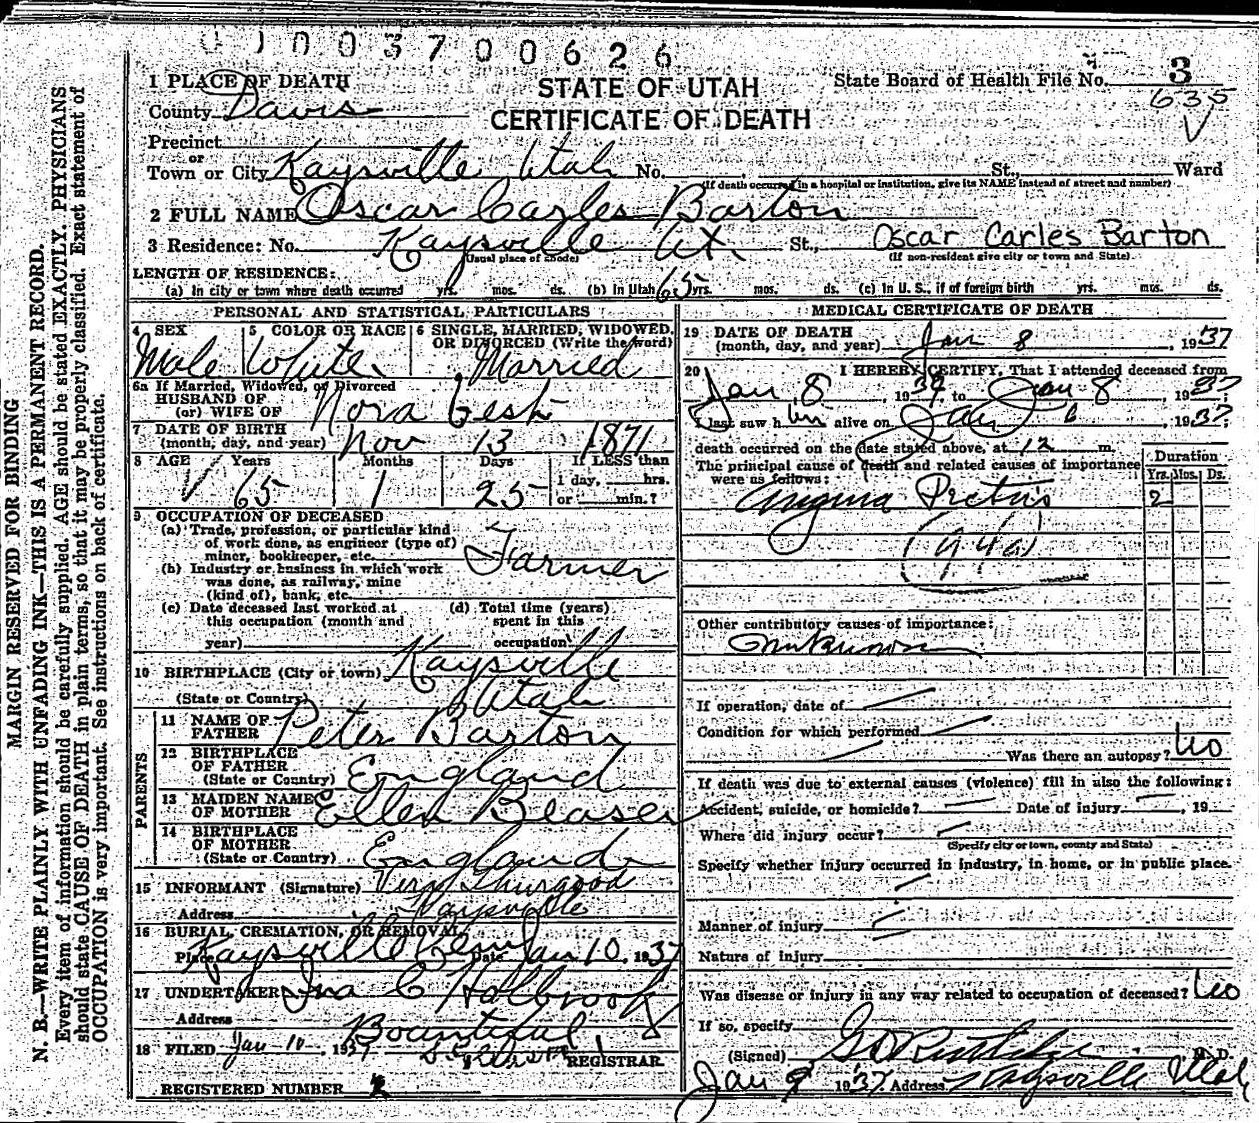 0 1 0 0 3 7 0 0 6 2 6
MARGIN RESERVED FOR BINDING
N. B.—WRITE PLAINLY WITH UNFADING INK—THIS IS A PERMANENT RECORD.
Every item of information should be carefully supplied. AGE should be stated EXACTLY. PHYSICIANS
should state CAUSE OF DEATH in plain terms, so that it may be properly classified. Exact statement of
OCCUPATION is very important. See instructions on back of certificate.
1 PLACE OF DEATH
County Davis
STATE OF UTAH
CERTIFICATE OF DEATH
State Board of Health File No. 3
635
Precinct
or
Town or City Kaysville Utah No. St., Ward
(If death occurred in a hospital or institution, give its NAME instead of street and number)
2 FULL NAME Oscar Carles Barton
3 Residence: No. Kaysville Ut. St., Oscar Carles Barton
(Usual place of abode) (If non-resident give city or town and State)
LENGTH OF RESIDENCE:
(a) In city or town where death occurred yrs. mos. ds. (b) In Utah 65 yrs. mos. ds. (c) In U. S., if of foreign birth yrs. mos. ds.
PERSONAL AND STATISTICAL PARTICULARS
4 SEX 5 COLOR OR RACE 6 SINGLE, MARRIED, WIDOWED, OR DIVORCED (Write the word)
Male White Married
6a If Married, Widowed, or Divorced
HUSBAND OF
(or) WIFE OF Nora
7 DATE OF BIRTH
(month, day, and year) Nov 13 1871
8 AGE Years Months Days If LESS than
65 1 25 1 day, hrs.
or min.?
9 OCCUPATION OF DECEASED
(a) Trade, profession, or particular kind
of work done, as engineer (type of)
miner, bookkeeper, etc. Farmer
(b) Industry or business in which work
was done, as railway, mine
(kind of), bank, etc.
(c) Date deceased last worked at
this occupation (month and
year)
(d) Total time (years)
spent in this
occupation
10 BIRTHPLACE (City or town) Kaysville
(State or Country) Utah
PARENTS
11 NAME OF
FATHER Peter Barton
12 BIRTHPLACE
OF FATHER
(State or Country) England
13 MAIDEN NAME
OF MOTHER Ellen Beaser
14 BIRTHPLACE
OF MOTHER
(State or Country) England
15 INFORMANT (Signature) Thurgood
Address Kaysville
16 BURIAL, CREMATION, OR REMOVAL
Place Kaysville Cem Date Jan 10, 1937
17 UNDERTAKER Ina C Holbrook
Address Bountiful
18 FILED Jan 10, 1937 REGISTRAR
REGISTERED NUMBER 2
MEDICAL CERTIFICATE OF DEATH
19 DATE OF DEATH
(month, day, and year) Jan 8, 1937
20 I HEREBY CERTIFY, That I attended deceased from
Jan 8, 1937, to Jan 8, 1937
I last saw him alive on Jan 6, 1937;
death occurred on the date stated above, at 12 m.
The principal cause of death and related causes of importance
were as follows:
Duration
Yrs. Mos. Ds.
Angina Pectoris 2
(94a)
Other contributory causes of importance:
Unknown
If operation, date of
Condition for which performed
Was there an autopsy? No
If death was due to external causes (violence) fill in also the following:
Accident, suicide, or homicide? Date of injury , 19
Where did injury occur?
(Specify city or town, county and State)
Specify whether injury occurred in industry, in home, or in public place.
Manner of injury
Nature of injury
Was disease or injury in any way related to occupation of deceased? No
If so, specify
(Signed) G D Rutledge M. D.
Jan 9 1937 Address Kaysville Utah